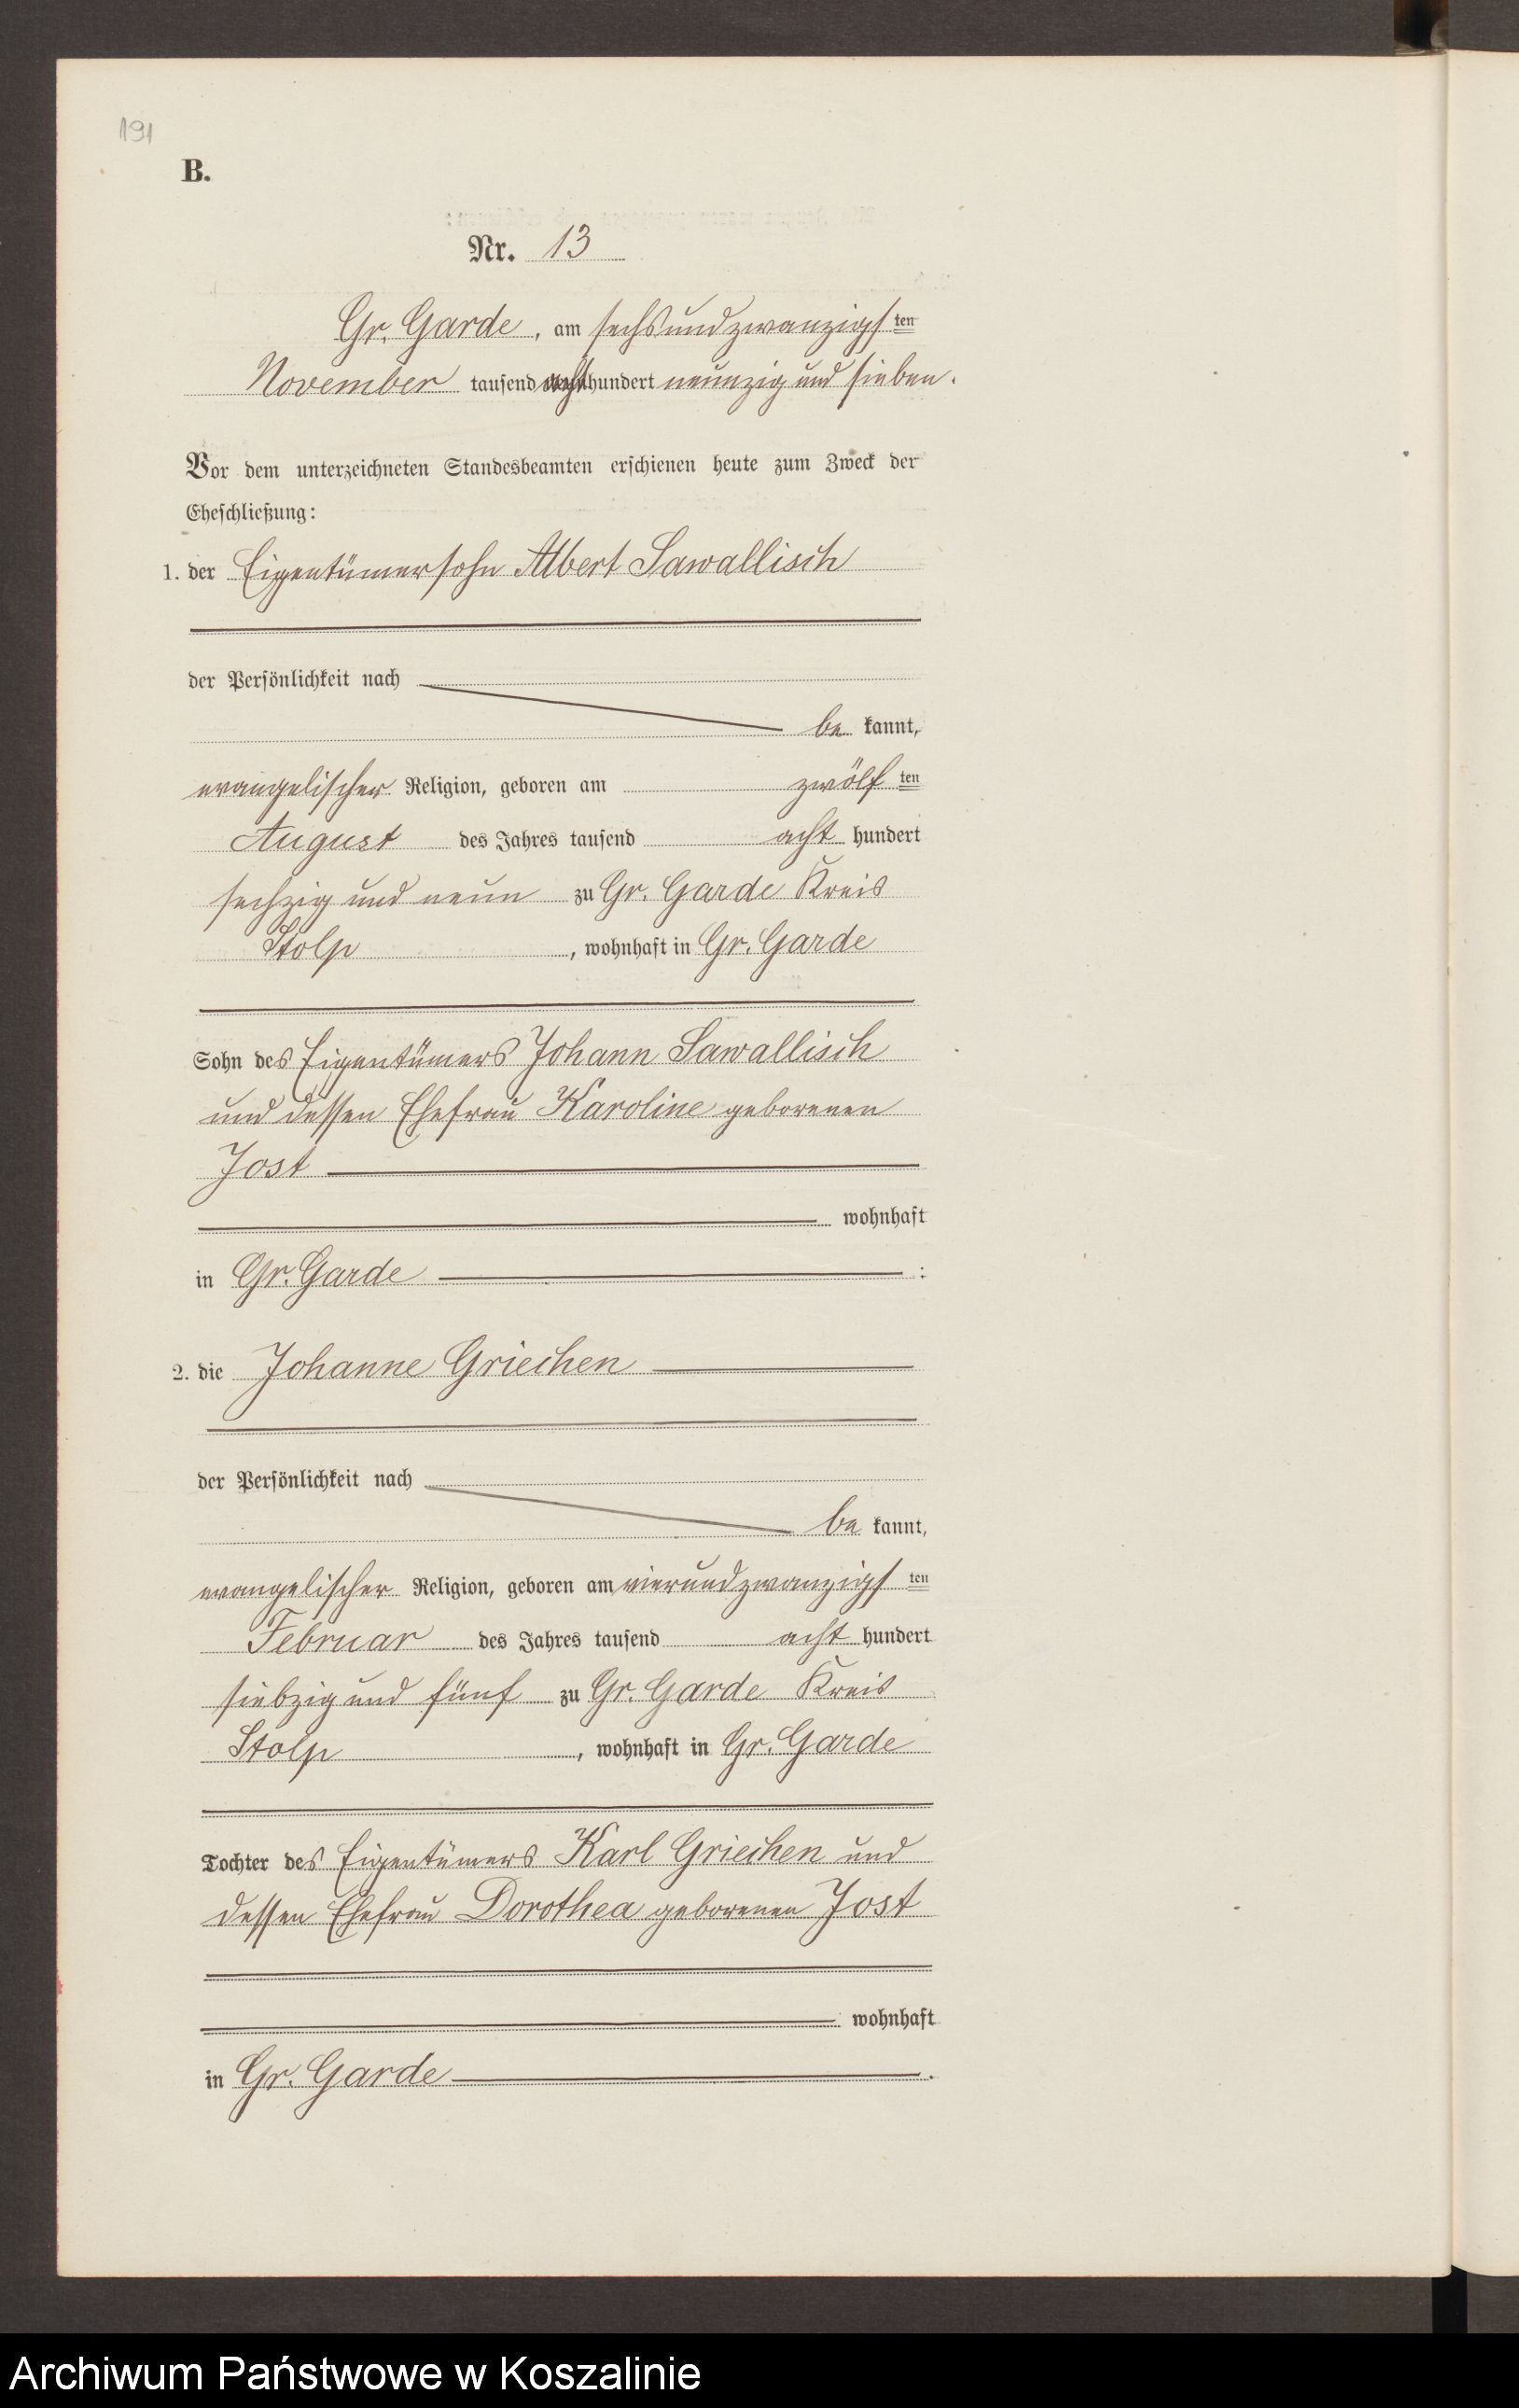 191
B.
Nr. 13
Gr. Garde, am sechsundzwanzigsten
November tausend achthundert neunzig und sieben.
Vor dem unterzeichneten Standesbeamten erschienen heute zum Zweck der
Eheschließung:
1. der Eigentümersohn Albert Sawallisch
der Persönlichkeit nach
be kannt,
evangelischer Religion, geboren am zwölften
August des Jahres tausend acht hundert
sechzig und neun zu Gr. Garde Kreis
Stolp, wohnhaft in Gr. Garde
Sohn des Eigentümers Johann Sawallisch
und dessen Ehefrau Karoline geborenen
Jost
wohnhaft
in Gr. Garde :
2. die Johanne Griechen
der Persönlichkeit nach
be kannt,
evangelischer Religion, geboren am vierundzwanzigsten
Februar des Jahres tausend acht hundert
siebzig und fünf zu Gr. Garde Kreis
Stolp, wohnhaft in Gr. Garde
Tochter des Eigentümers Karl Griechen und
dessen Ehefrau Dorothea geborenen Jost
wohnhaft
in Gr. Garde.
Archiwum Państwowe w Koszalinie